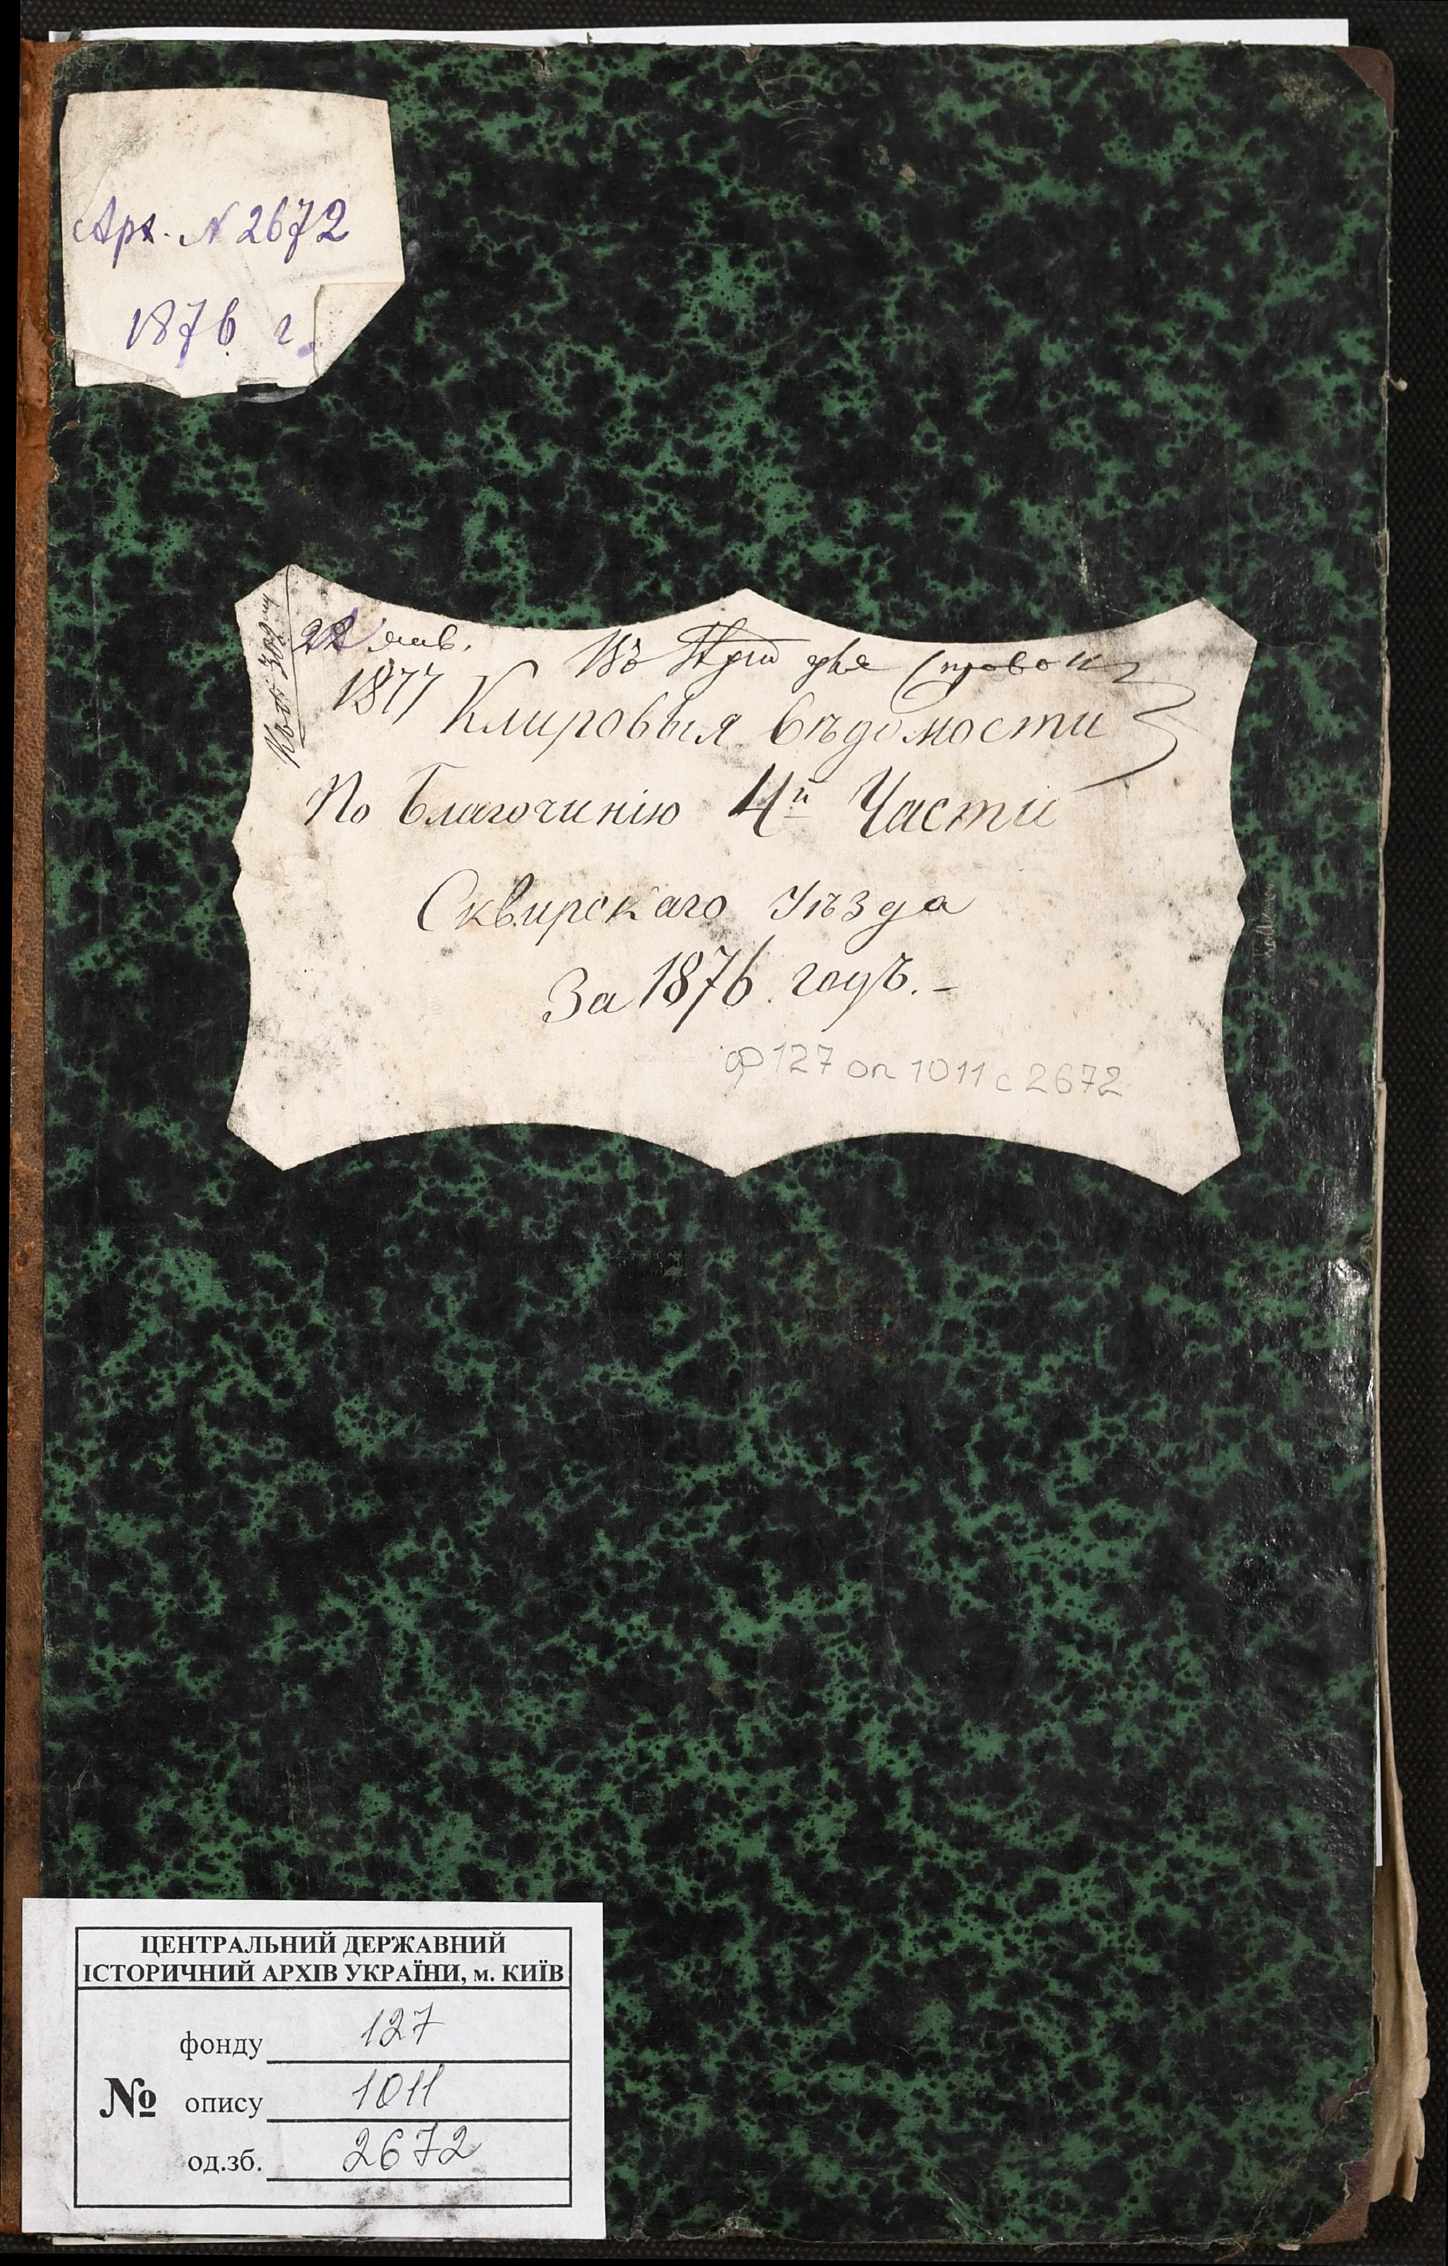 Арх. N 2672
1876 г.
22 янв.
1877
Въ для справокъ
Клировыя вѣдомости
По Благочинію 4й Части
Сквирскаго Уѣзда
За 1876 годъ.-
ф 127 оп 1011 с 2672
ЦЕНТРАЛЬНИЙ ДЕРЖАВНИЙ
ІСТОРИЧНИЙ АРХІВ УКРАЇНИ, м. КИЇВ
фонду 127
№ опису 1011
од.зб. 2672